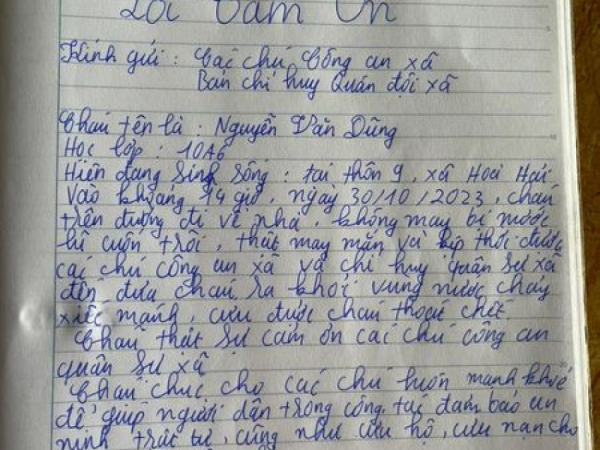 Lời Cảm Ơn
Kính gửi : Các chú Công an xã
Ban chỉ huy Quân đội xã
Cháu tên là : Nguyễn Văn Dũng
Học lớp : 10A6
Hiện đang sinh sống : tại thôn 9, xã Hoài Hải
Vào khoảng 14 giờ, ngày 30/10/2023, cháu
trên đường đi về nhà, không may bị nước
lũ cuốn trôi, thật may mắn và kịp thời được
các chú công an xã và chỉ huy quân sự xã
đến đưa cháu ra khỏi vùng nước chảy
xiết mạnh, cứu được cháu thoát chết.
Cháu thật sự cảm ơn các chú công an
quân sự xã
Cháu chúc cho các chú luôn mạnh khoẻ
để giúp người dân trong công tác đảm bảo an
ninh trật tự, cũng như cứu hộ, cứu nạn cho